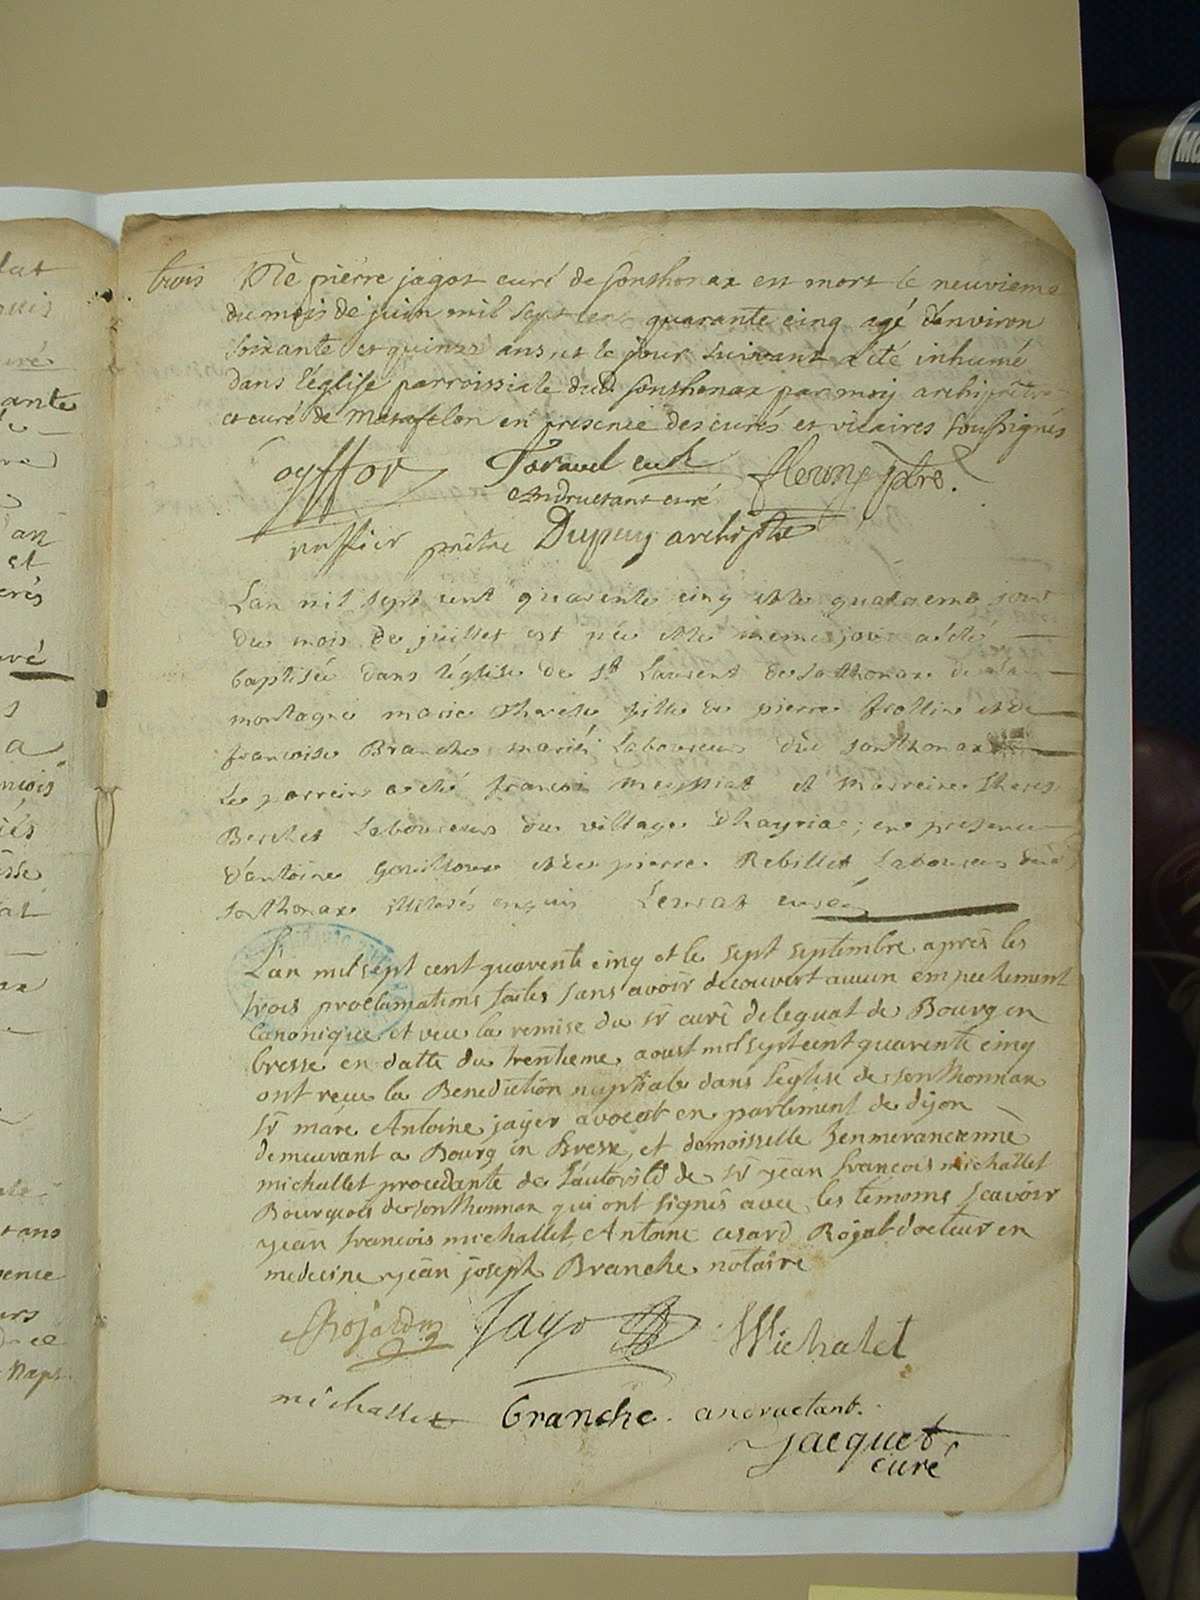 trois Mre pierre jagot curé de sonthonax est mort le neuvieme
du mois de juin mil sept cent quarante cinq agé d'environ
soixante et quinze ans et le jour suivant a été inhumé
dans l'église parroissiale dud sonthonax par moy archiprêtre
et curé de Matafelon en presence des curés et vicaires soussignés
curé
andructant curé
prêtre Dupuy archiptre
Lan mil sept cent quarente cinq et le quatrieme jour
du mois de juillet est née et le meme jour a été
baptisée dans l'église de St Laurent de Sothonax de la
montagne marie Therese fille de pierre frollin et de
francoise Branche mariés Laboureurs dud sonthonax
Le parrein a été francois meyssiat et Marreine Therese
Berchet Laboureurs du village Dhayria; en presence
d'antoine gouilloux et de pierre Rebillet Laboureurs dud
sonthonax illiterés enquis curé
L'an mil sept cent quarente cinq et le sept septembre après les
trois proclamations faites sans avoir decouvert aucun empechement
canonique et veu la remise du sr curé deleguat de Bourg en
bresse en datte du trentieme aoust mil sept cent quarente cinq
ont receu la Benediction nuptiale dans l'église de sonthonnax
sr marc Antoine jayer avocat en parlement de dijon
demeurant a Bourg en Bresse, et demoiselle
michallet procedante de l'autorité de sr jean francois michallet
Bourgeois de sonthonnax qui ont signés avec les temoins scavoir
jean francois michallet Antoine cesard Rojat docteur en
medecine jean joseph Branche notaire
Michalet
michallet Branche. andructant.
Jacquet
curé